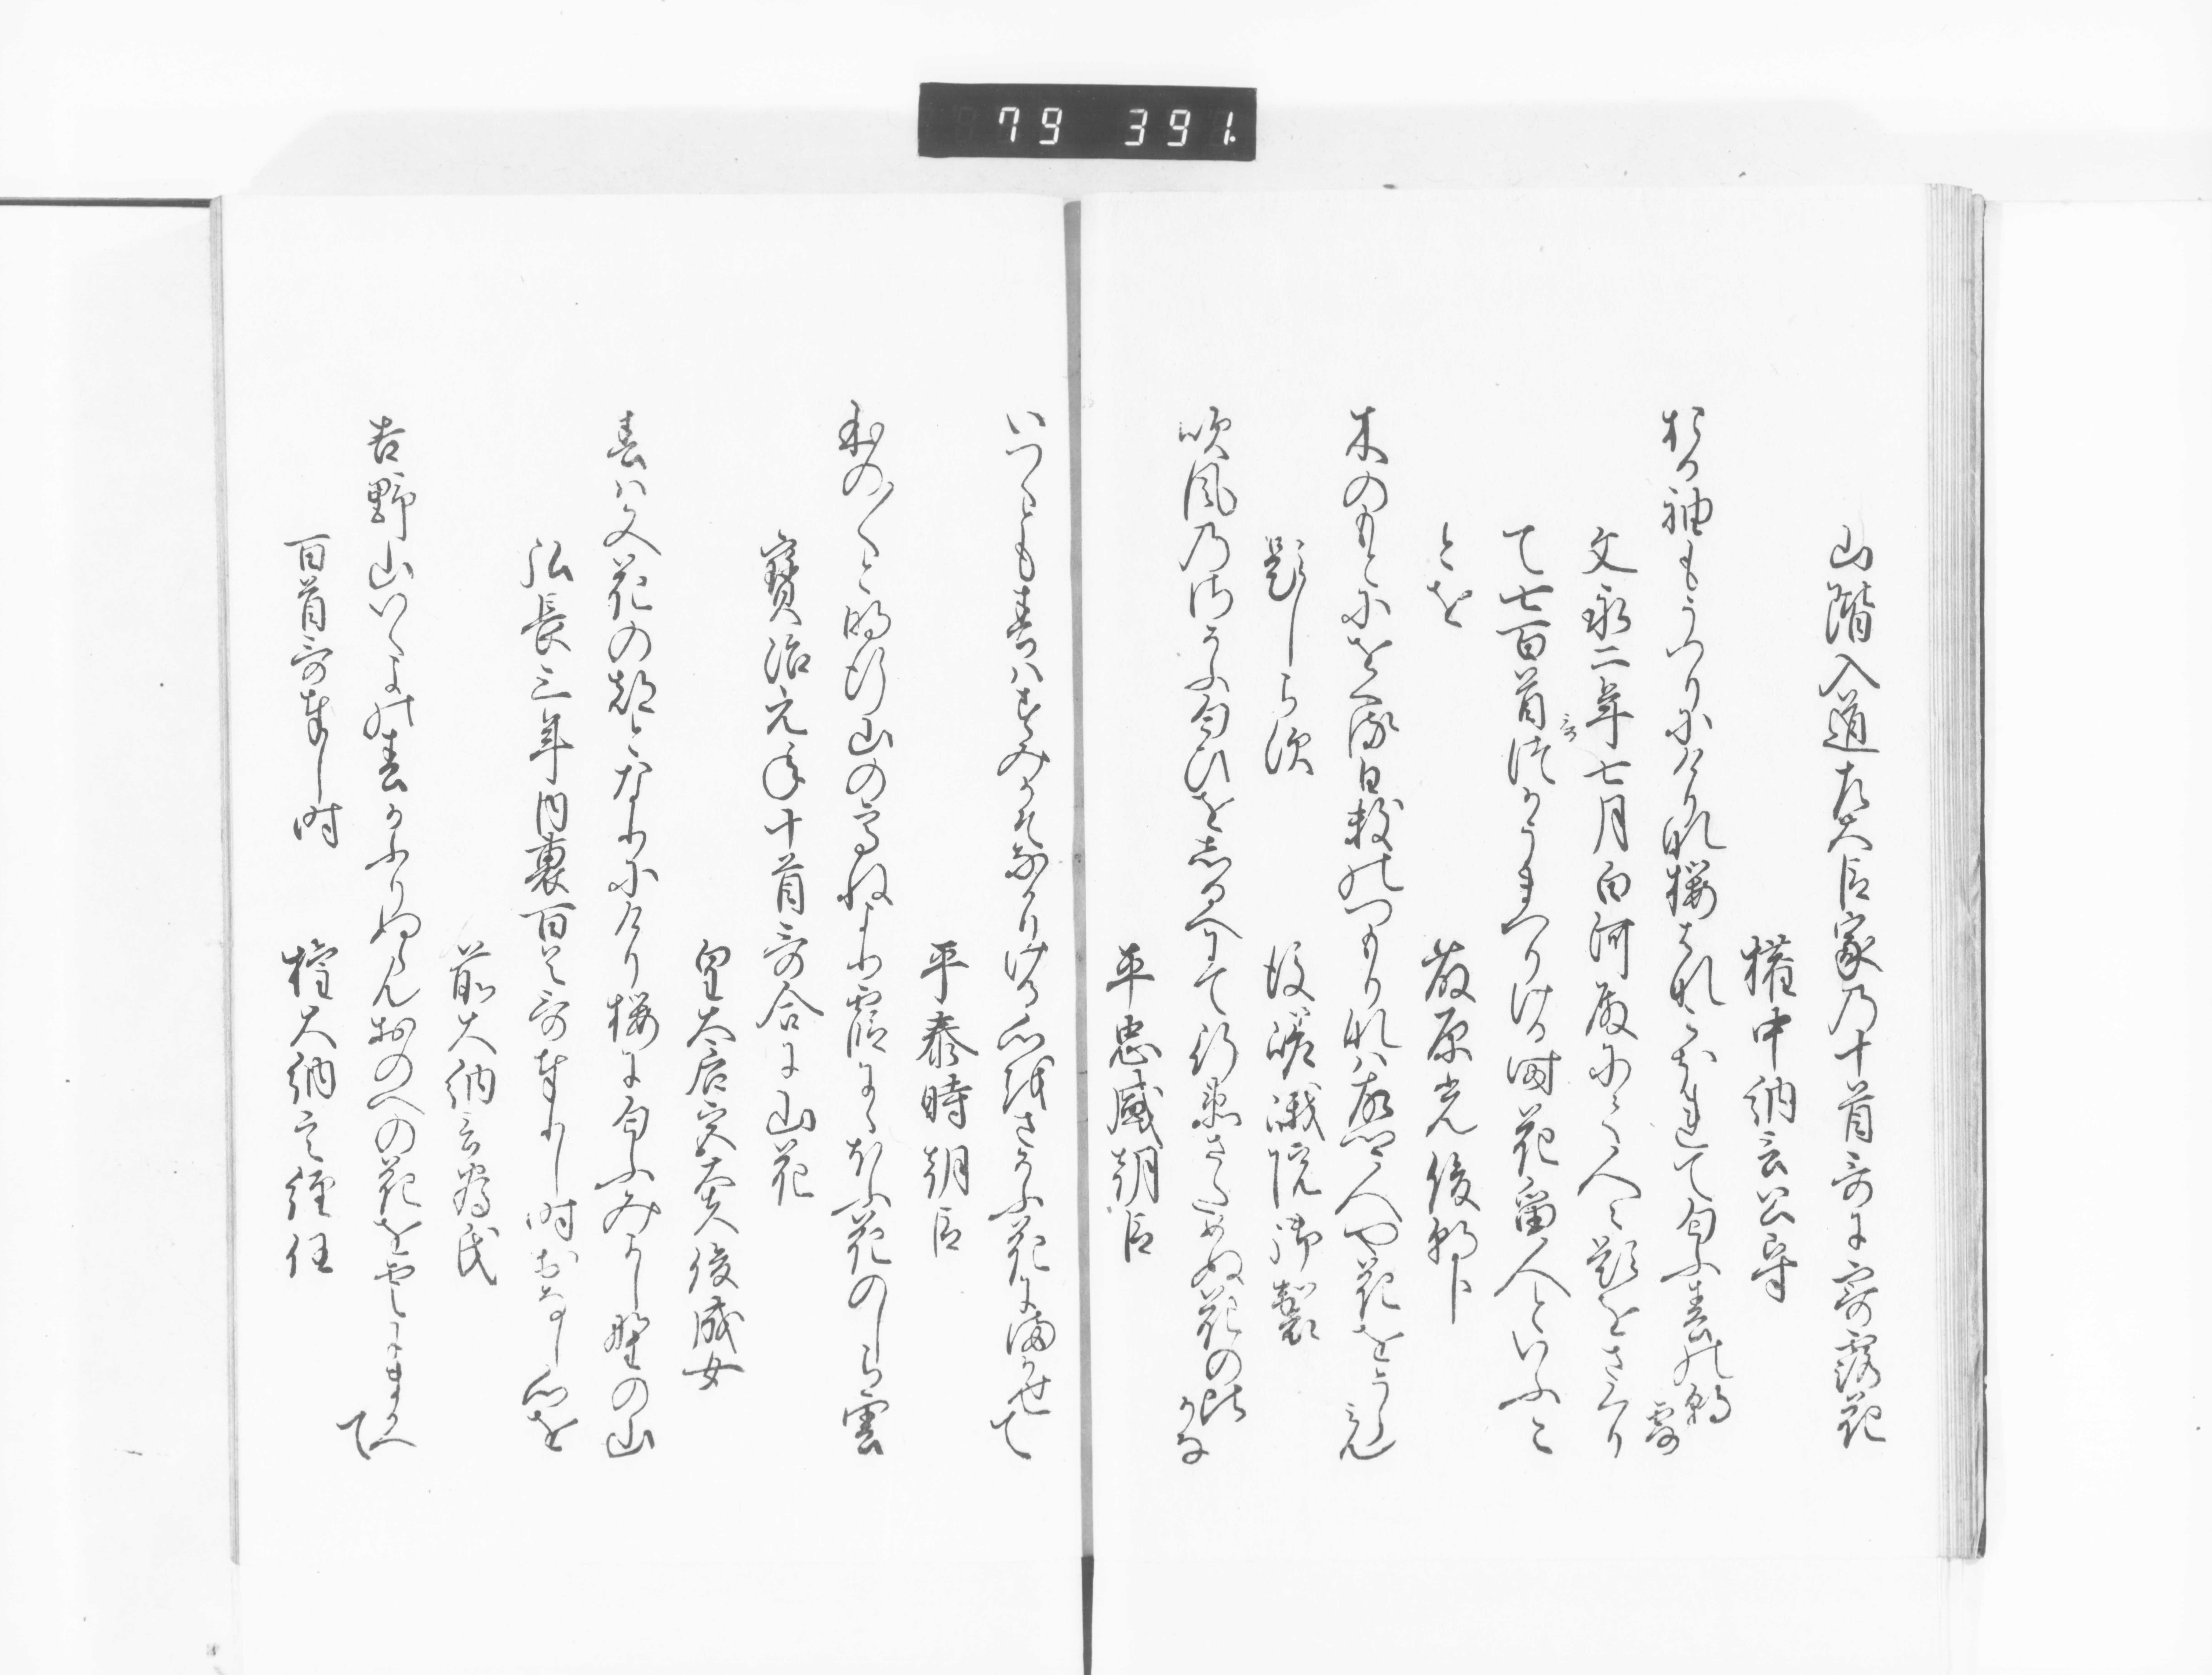 79 391.
山階入道左大臣家乃十首哥に寄露花
権中納言公守
おる袖もうつりにけりな桜花こほれて匂ふ春の朝露
文永二年七月白河殿にて人々題をさくりて
て七百首哥つかうまつりける時花留人といふこ
とを
藤原光俊朝臣
木のもとにをくる日数のつもりなは故郷人や花をうらみん
題しらす
後嵯峨院御製
吹風乃さそふ匂ひをしるへにて行ゑさためぬ花の比かな
平忠盛朝臣
いつくとも春はすみかそなかりける心のさそふ花にまかせて
平泰時朝臣
ほの〱と明行山の高ねより霞ににほふ花のしら雲
寶治元年十首哥合に山花
皇太后宮大夫俊成女
春は又花の都となりにけり桜に匂ふみよし野の山
弘長三年内裏百首哥奉りし時おなし心を
前大納言為氏
吉野山いくよの春かふりぬらんおのへの花を雲にまかへて
百首哥奉し時
権大納言経任